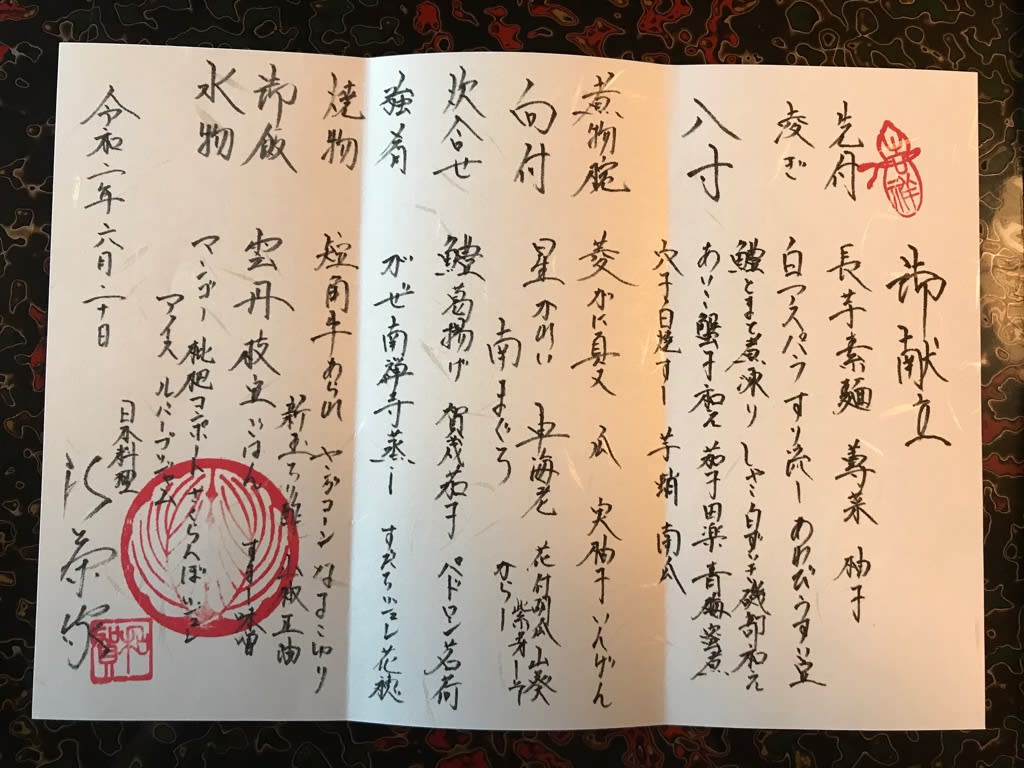 御献立
先付 長芋素麺 蓴菜 柚子
凌ぎ 白アスパラすり流し あわび うすい豆
八寸 鱧とまと煮凍り しゃこ白ずいき磯部和え
あいこ蟹子和え 茄子田楽 青梅蜜煮
穴子白焼すし 芋蛸南瓜
煮物椀 菱かに真丈 瓜 実柚子 いんげん
向付 星かれい 車海老 花付胡瓜 山葵
南まぐろ からし 紫芽
炊合せ 鱧葛揚げ 賀茂茄子 ペドロン 茗荷
強肴 がぜ南禅寺蒸し すだちジュレ 花穂
焼物 短角牛あられ ヤングコーン なまこ
新玉 山椒 豆油
御飯 雲丹枝豆ごはん すまし味噌
水物 マンゴー 枇杷コンポート さくらんぼジュレ
アイス ルバーブジャム
令和二年六月二十日
日本料理